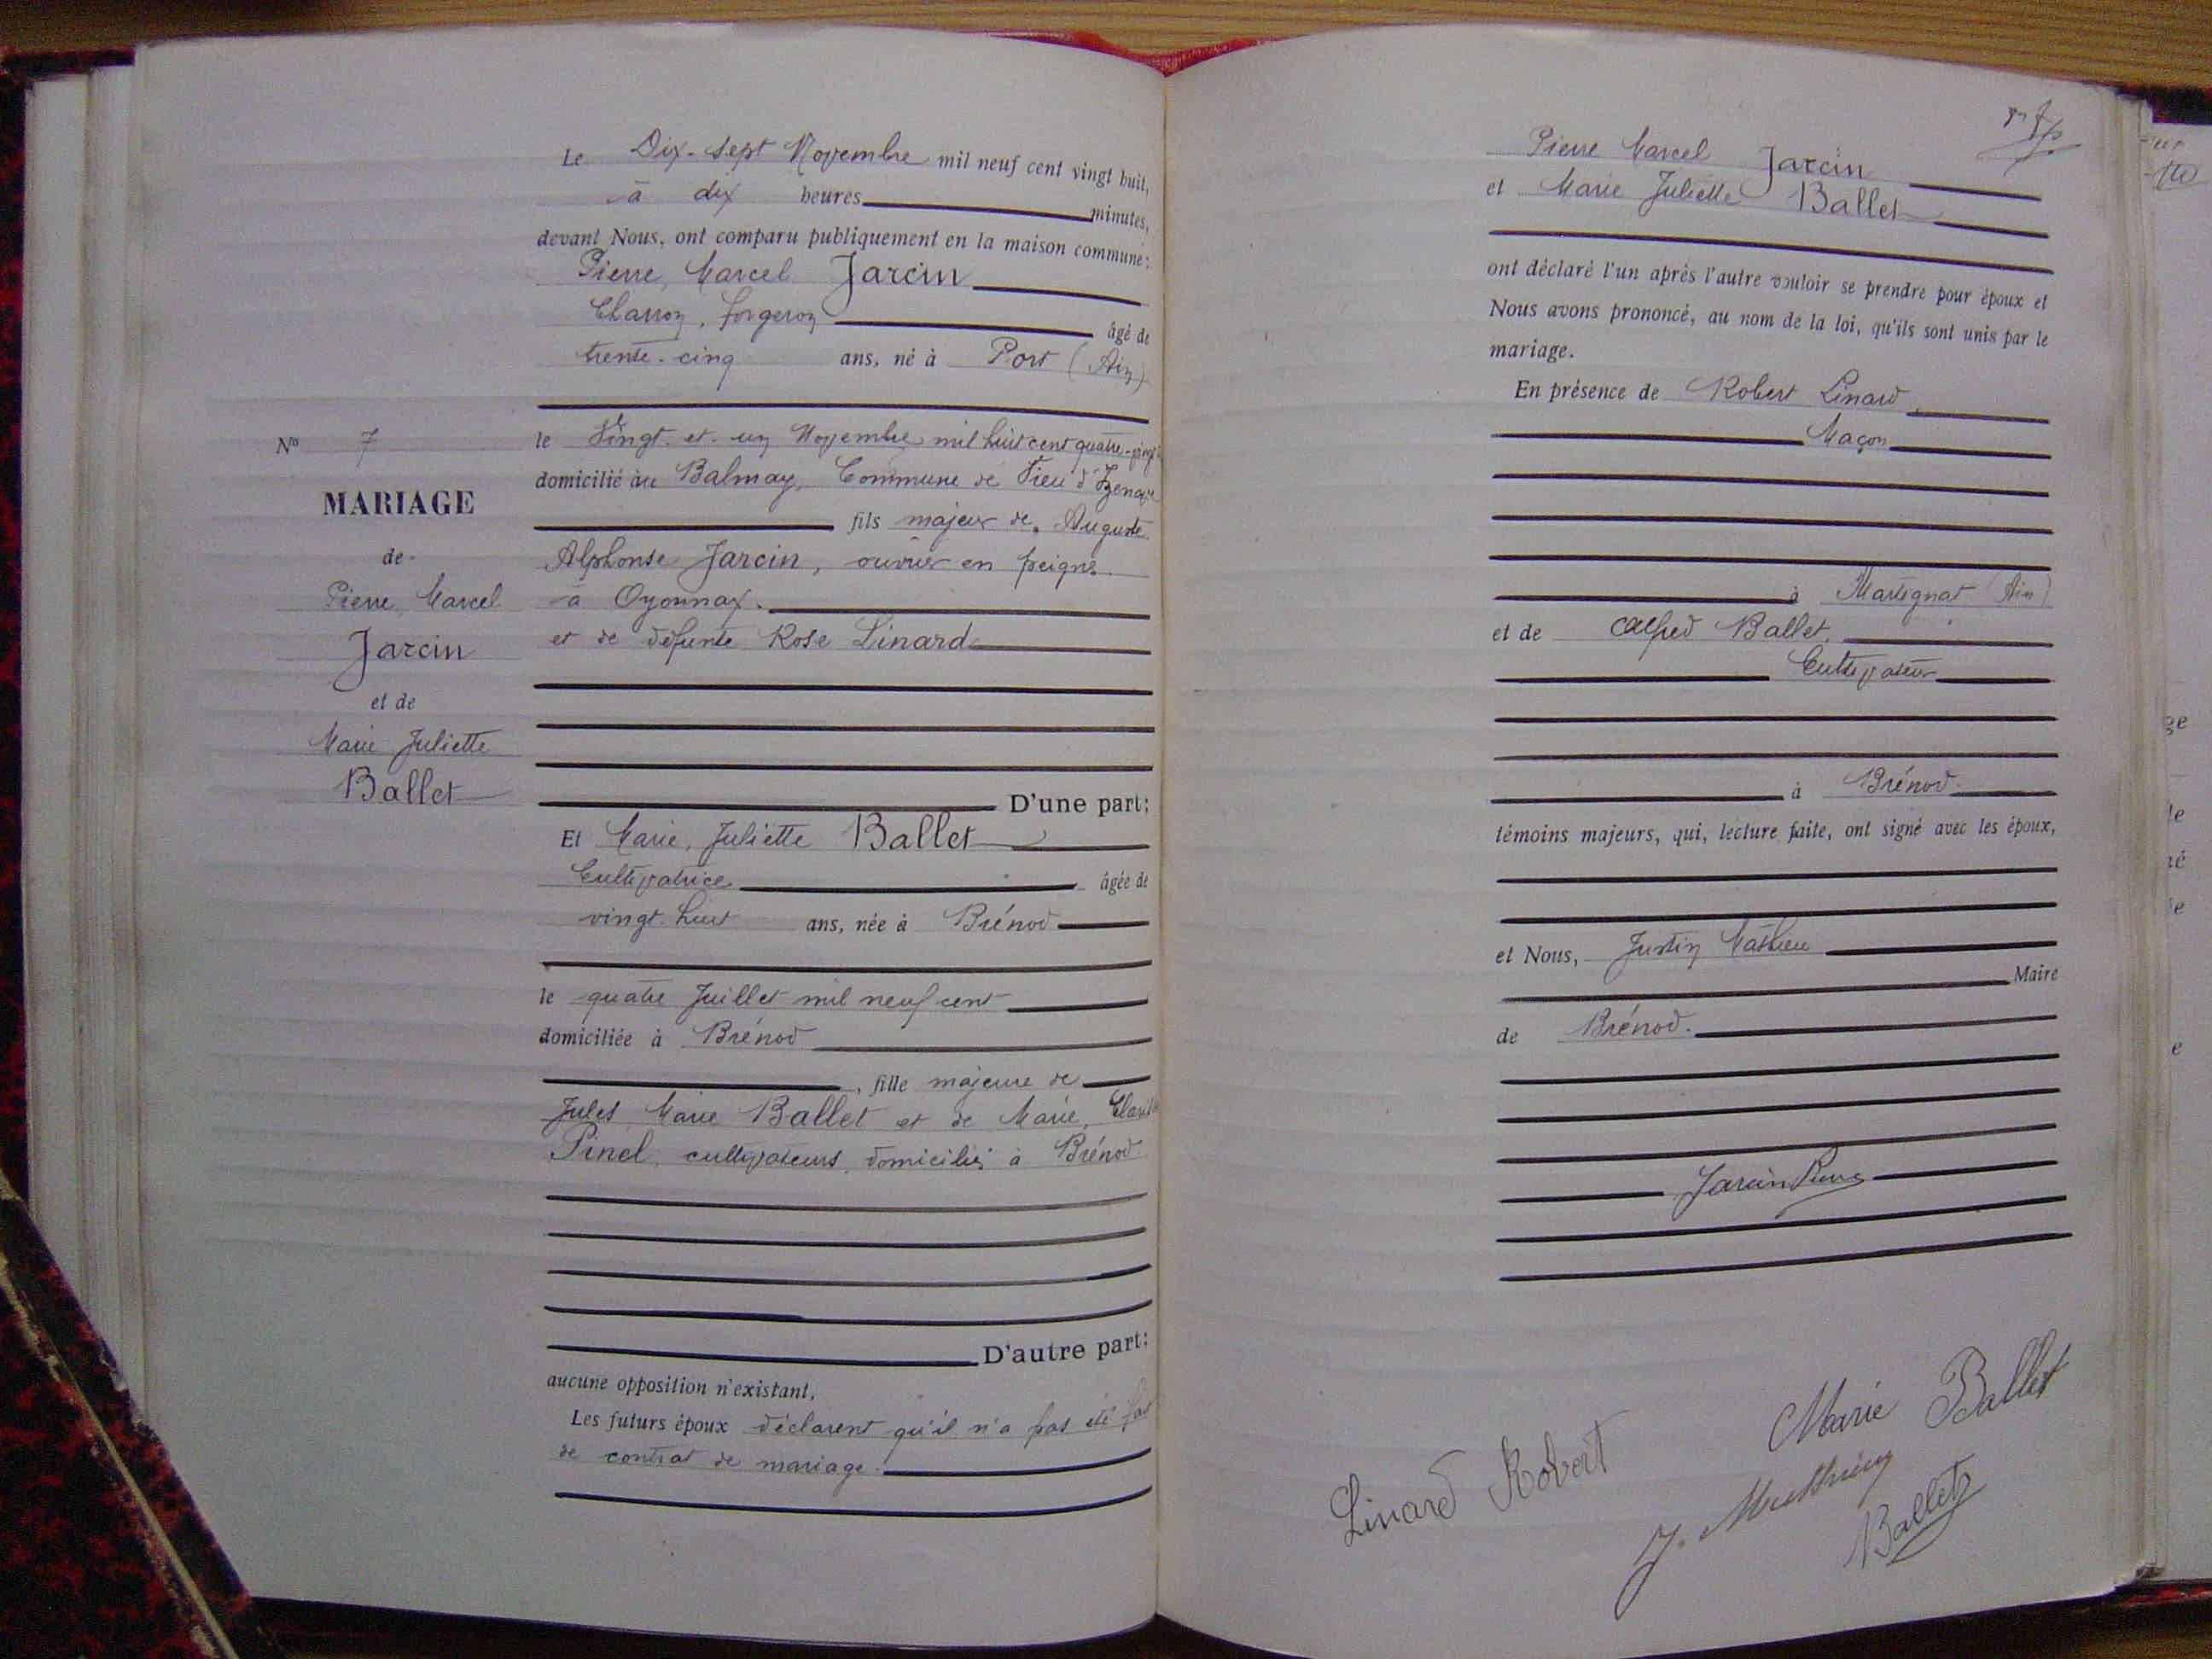 Le Dix-sept Novembre mil neuf cent vingt huit,
à dix heures minutes,
devant Nous, ont comparu publiquement en la maison commune:
Pierre, Marcel Jarcin
Charron, forgeron âgé de
trente-cinq ans, né à Port (Ain)
le Vingt-et-un Novembre mil huit cent quatre-vingt
domicilié au Balmay, Commune de Vieu d'Izenave
fils majeur de Auguste
Alphonse Jarcin, ouvrier en peigne
à Oyonnax.
et de defunte Rose Linard
D'une part:
Et Marie, Juliette Ballet
Cultivatrice âgée de
vingt-huit ans, née à Brénod
le quatre Juillet mil neuf cent
domiciliée à Brénod
, fille majeure de
Jules Marie Ballet et de Marie,
Pinel, cultivateurs, domiciliés à Brénod.
D'autre part:
aucune opposition n'existant,
Les futurs époux déclarent qu'il n'a pas été fait
de contrat de mariage.
No 7
MARIAGE
de
Pierre, Marcel
Jarcin
et de
Marie Juliette
Ballet
Pierre Marcel Jarcin
et Marie Juliette Ballet
ont déclaré l'un après l'autre vouloir se prendre pour époux et
Nous avons prononcé, au nom de la loi, qu'ils sont unis par le
mariage.
En présence de Robert Linard,
Maçon
à Martignat (Ain)
et de Alfred Ballet,
Cultivateur
à Brénod.
témoins majeurs, qui, lecture faite, ont signé avec les époux,
et Nous, Justin Mathieu
Maire
de Brénod.
Jarcin Pierre
Marie Ballet
Linard Robert
J. Mathieu
Ballet